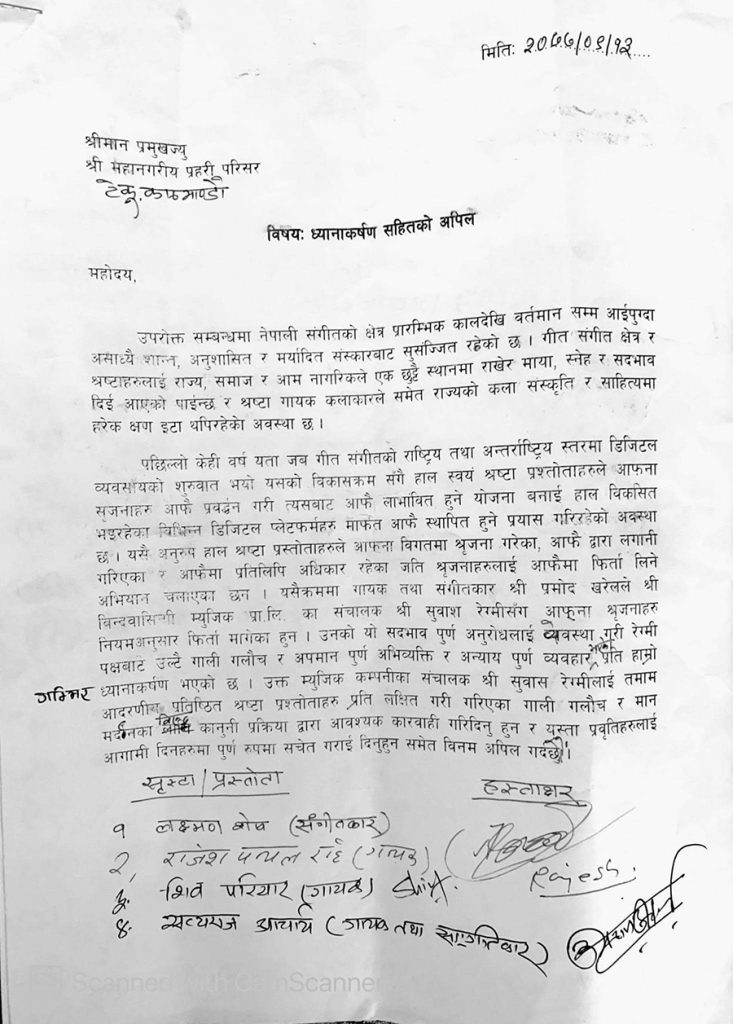 मिति: २०७७/०९/१२
श्रीमान प्रमुखज्यु
श्री महानगरीय प्रहरी परिसर
टेकू, काठमाण्डौ
विषय: ध्यानाकर्षण सहितको अपिल
महोदय,
उपरोक्त सम्बन्धमा नेपाली संगीतको क्षेत्र प्रारम्भिक कालदेखि वर्तमान सम्म आईपुग्दा
असाध्यै शान्त, अनुशासित र मर्यादित संस्कारबाट सुसज्जित रहेको छ । गीत संगीत क्षेत्र र
श्रष्टाहरुलाई राज्य, समाज र आम नागरिकले एक छुट्टै स्थानमा राखेर माया, स्नेह र सदभाव
दिई आएको पाईन्छ र श्रष्टा गायक कलाकारले समेत राज्यको कला संस्कृति र साहित्यमा
हरेक क्षण इटा थपिरहेको अवस्था छ ।
पछिल्लो केही वर्ष यता जब गीत संगीतको राष्ट्रिय तथा अन्तर्राष्ट्रिय स्तरमा डिजिटल
व्यवसायको शुरुवात भयो यसको विकासक्रम संगै हाल स्वयं श्रष्टा प्रश्तोताहरुले आफ्ना
सृजनाहरु आफै प्रवर्द्धन गरी त्यसबाट आफै लाभावित हुने योजना बनाई हाल विकसित
भइरहेका विभिन्न डिजिटल प्लेटफर्महरु मार्फत आफै स्थापित हुने प्रयास गरिरहेको अवस्था
छ । यसै अनुरुप हाल श्रष्टा प्रस्तोताहरुले आफ्ना विगतमा श्रृजना गरेका, आफै द्वारा लगानी
गरिएका र आफैमा प्रतिलिपि अधिकार रहेका जति श्रृजनाहरुलाई आफैमा फिर्ता लिने
अभियान चलाएका छन । यसैक्रममा गायक तथा संगीतकार श्री प्रमोद खरेलले श्री
बिन्दवासिनी म्युजिक प्रा.लि. का संचालक श्री सुवाश रेग्मीसंग आफ्ना श्रृजनाहरु
नियमअनुसार फिर्ता मागेका हुन । उनको यो सदभाव पुर्ण अनुरोधलाई वेवस्था गरी रेग्मी
पक्षबाट उल्टै गाली गलौच र अपमान पुर्ण अभिव्यक्ति र अन्याय पुर्ण व्यवहार प्रति हाम्रो
गम्भिर ध्यानाकर्षण भएको छ । उक्त म्युजिक कम्पनीका संचालक श्री सुवास रेग्मीलाई तमाम
आदरणीय प्रतिष्ठित श्रष्टा प्रश्तोताहरु प्रति लक्षित गरी गरिएका गाली गलौच र मान
मर्दनका बिरुद्ध कानुनी प्रक्रिया द्वारा आवश्यक कारवाही गरिदिनु हुन र यस्ता प्रवृतिहरुलाई
आगामी दिनहरुमा पुर्ण रुपमा सचेत गराई दिनुहुन समेत विनम्र अपिल गर्दछौं ।
सृस्टा/प्रस्तोता हस्ताक्षर
१ लक्ष्मण शेष (संगीतकार)
२, राजेश पायल राई (गायक) Rajesh.
३. शिव परियार (गायक) Shiva.
४. सत्यराज आचार्य (गायक तथा संगीतकार)
Scanned with CamScanner